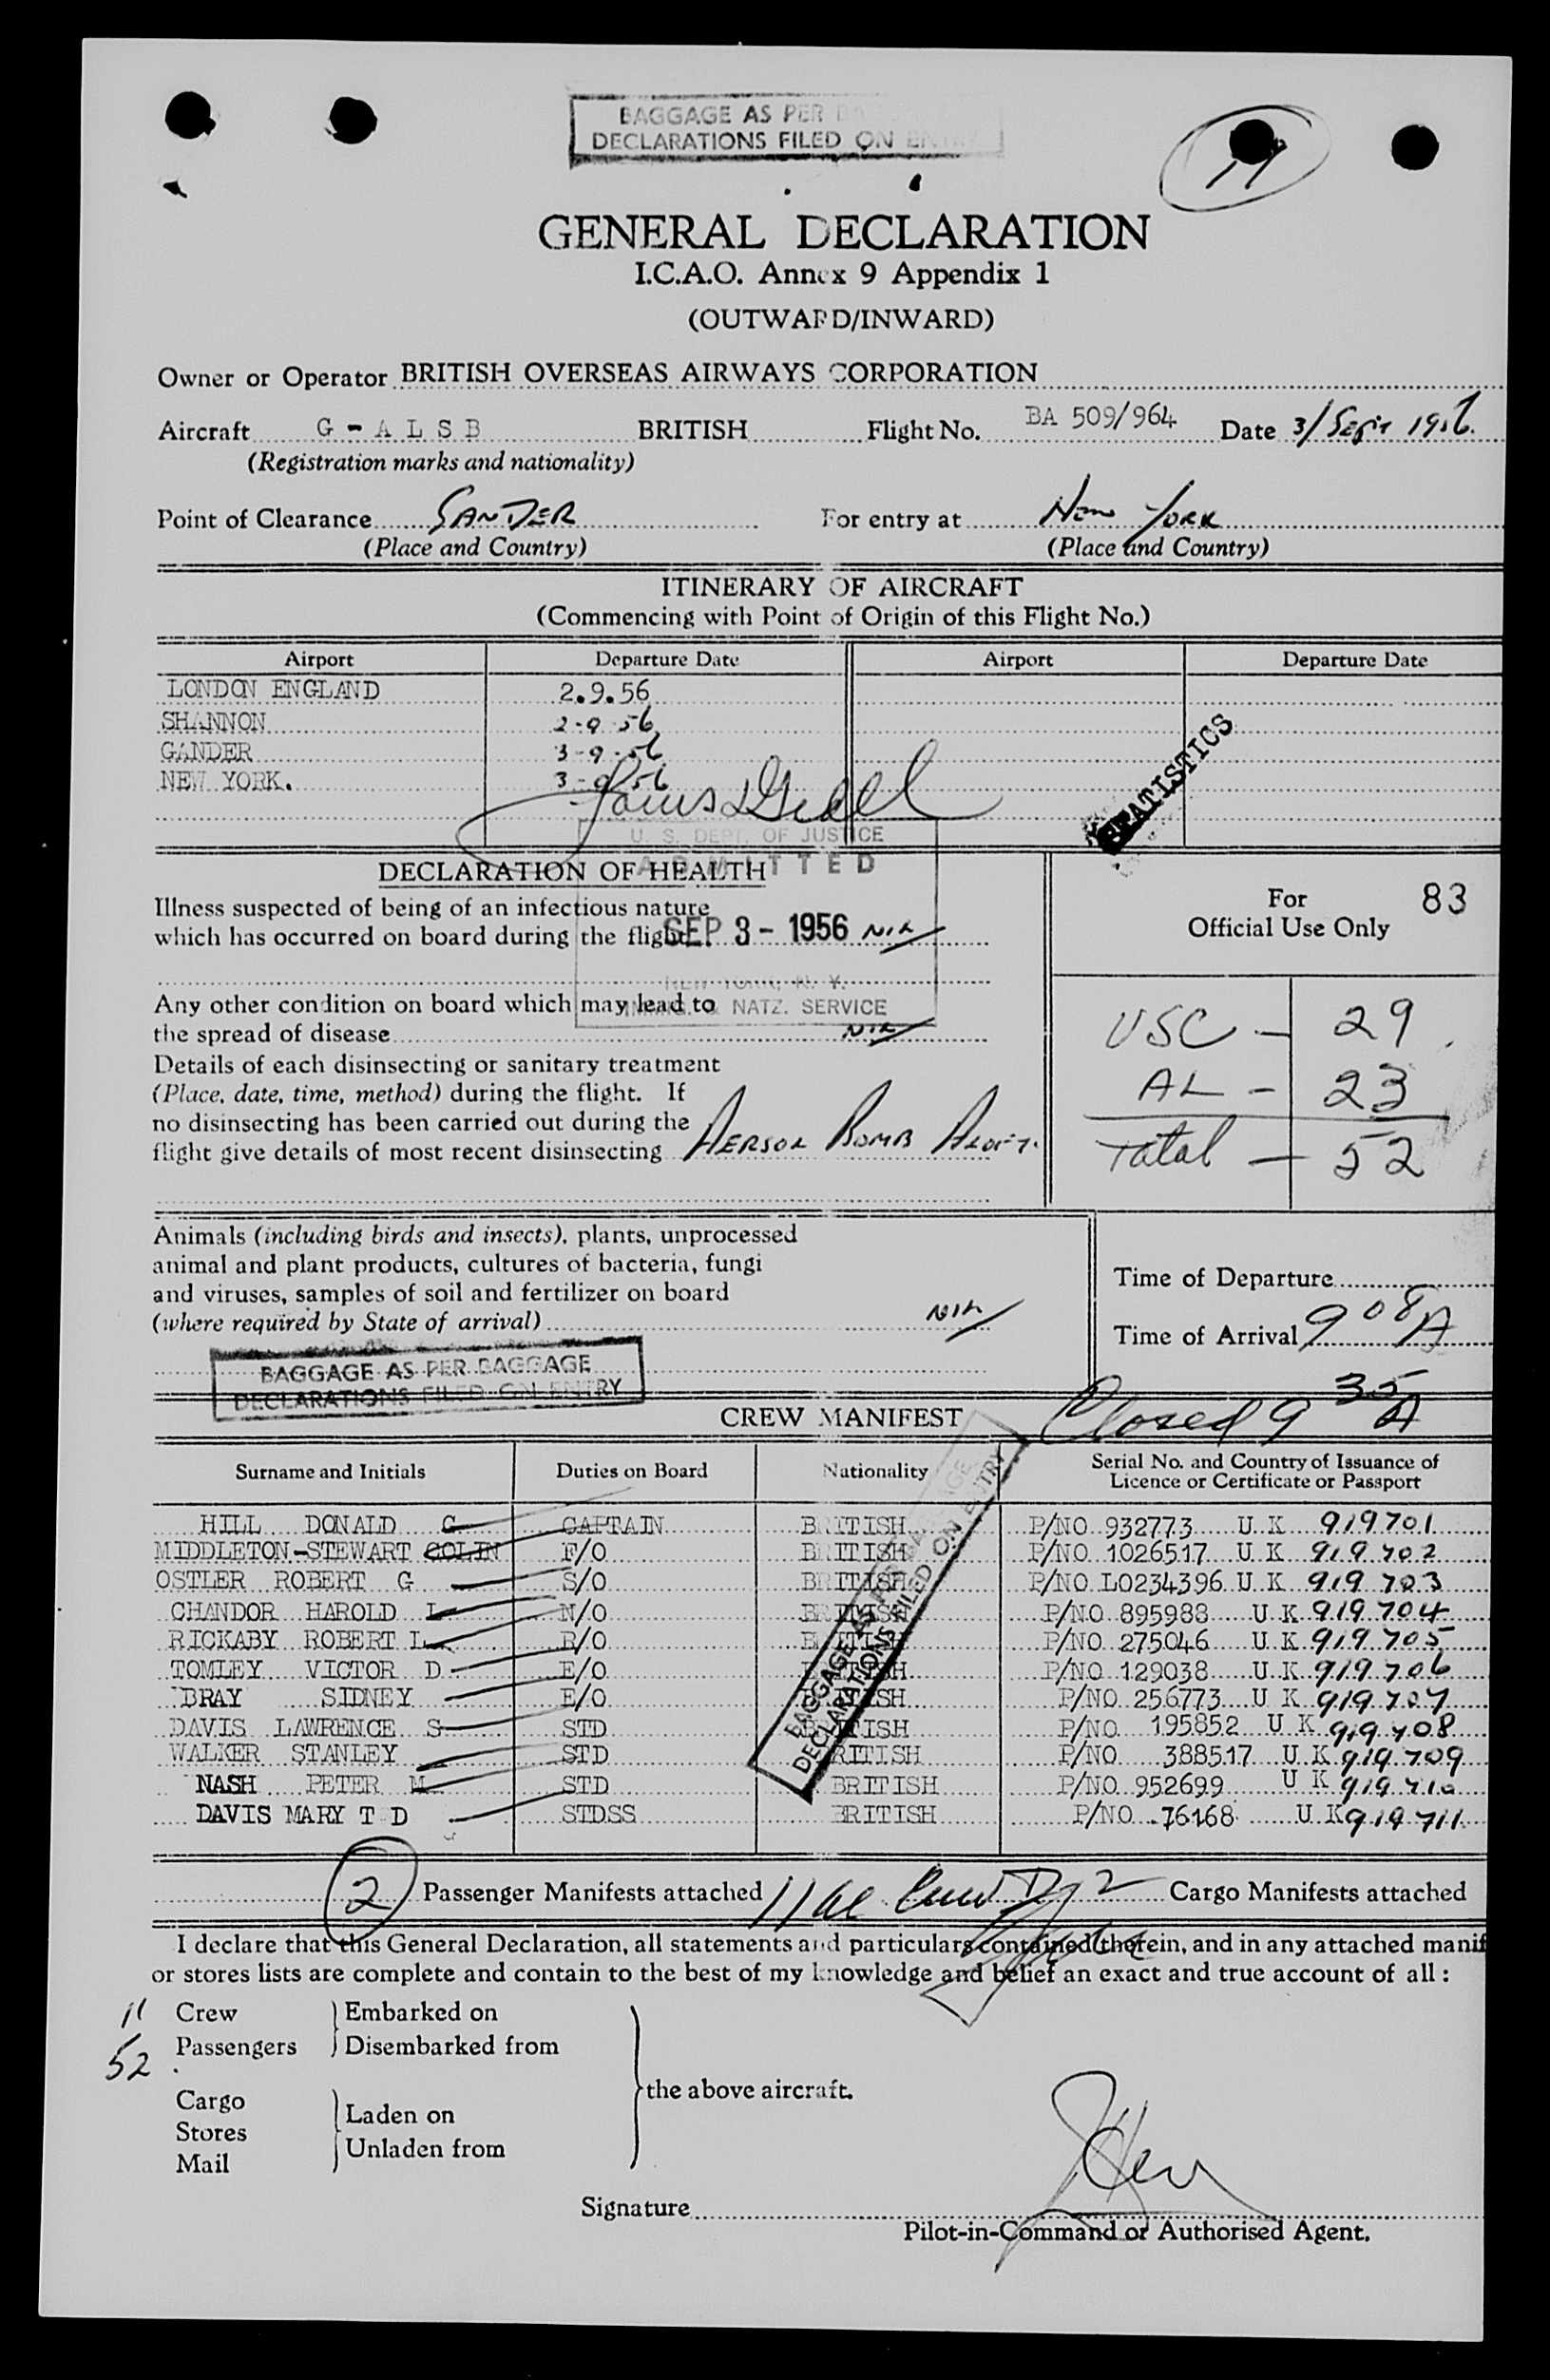 BAGGAGE AS PER
DECLARATIONS FILED ON
GENERAL DECLARATION
I.C.A.O. Annex 9 Appendix 1
(OUTWARD/INWARD)
Owner or Operator BRITISH OVERSEAS AIRWAYS CORPORATION
Aircraft G - A L S B BRITISH Flight No. BA 509/964 Date 3/Sept 1956
(Registration marks and nationality)
Point of Clearance GANDER For entry at New York
(Place and Country) (Place and Country)
ITINERARY OF AIRCRAFT
(Commencing with Point of Origin of this Flight No.)
Airport Departure Date Airport Departure Date
LONDON ENGLAND 2.9.56
SHANNON 2-9-56
GANDER 3-9-56
NEW YORK. 3-9-56
STATISTICS
U. S. DEPT. OF JUSTICE
ADMITTED
SEP 3 - 1956
NEW YORK, N. Y.
IMMIG. & NATZ. SERVICE
DECLARATION OF HEALTH
Illness suspected of being of an infectious nature
which has occurred on board during the flight NIL
Any other condition on board which may lead to
the spread of disease NIL
Details of each disinsecting or sanitary treatment
(Place, date, time, method) during the flight. If
no disinsecting has been carried out during the
flight give details of most recent disinsecting AERSOL BOMB ALOFT.
For 83
Official Use Only
USC - 29
AL - 23
Total - 52
Animals (including birds and insects), plants, unprocessed
animal and plant products, cultures of bacteria, fungi
and viruses, samples of soil and fertilizer on board
(where required by State of arrival) NIL
Time of Departure
Time of Arrival 9 08 A
BAGGAGE AS PER BAGGAGE
DECLARATIONS FILED ON ENTRY
Closed 9 35 A
CREW MANIFEST
Surname and Initials Duties on Board Nationality Serial No. and Country of Issuance of
Licence or Certificate or Passport
HILL DONALD G CAPTAIN BRITISH P/NO 932773 U K 919701
MIDDLETON-STEWART COLIN F/O BRITISH P/NO 1026517 U K 919702
OSTLER ROBERT G S/O BRITISH P/NO L0234396 U K 919703
CHANDOR HAROLD L N/O BRITISH P/NO 895988 U K 919704
RICKABY ROBERT L R/O BRITISH P/NO 275046 U K 919705
TOMLEY VICTOR D E/O BRITISH P/NO 129038 U K 919706
BRAY SIDNEY E/O BRITISH P/NO 256773 U K 919707
DAVIS LAWRENCE S STD BRITISH P/NO 195852 U K 919708
WALKER STANLEY STD BRITISH P/NO 388517 U K 919709
NASH PETER M STD BRITISH P/NO 952699 U K 919710
DAVIS MARY T D STDSS BRITISH P/NO 76168 U K 919711
BAGGAGE AS PER BAGGAGE
DECLARATIONS FILED ON ENTRY
2 Passenger Manifests attached 11 al Crew D 2 Cargo Manifests attached
I declare that this General Declaration, all statements and particulars contained therein, and in any attached manif
or stores lists are complete and contain to the best of my knowledge and belief an exact and true account of all :
11 Crew Embarked on
52 Passengers Disembarked from
the above aircraft.
Cargo
Laden on
Stores
Unladen from
Mail
Signature
Pilot-in-Command or Authorised Agent.